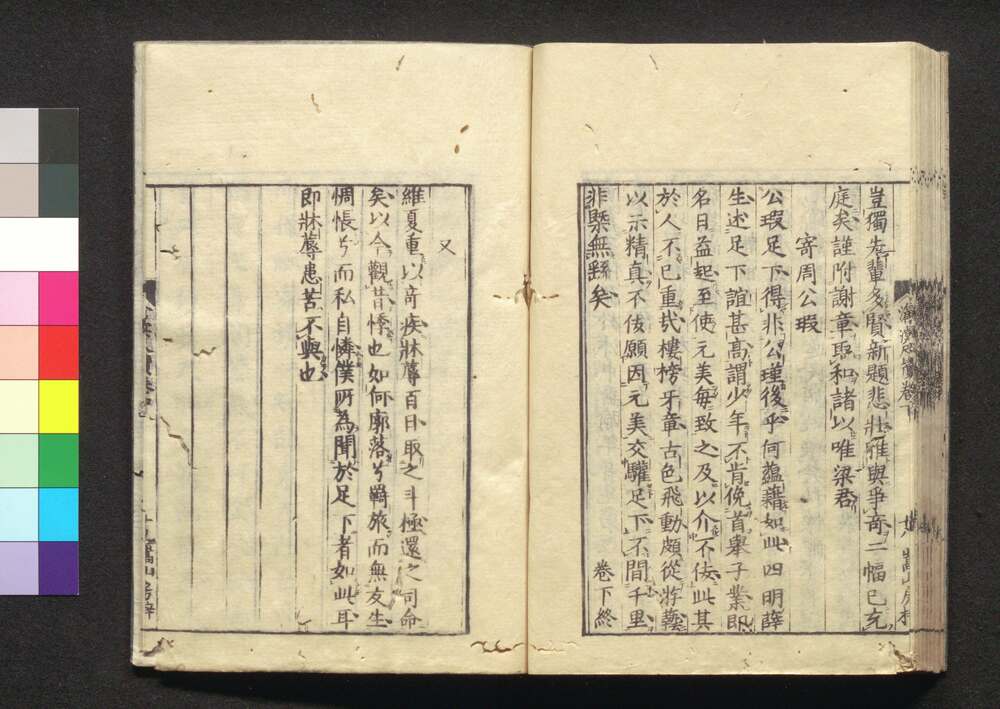 豈獨先輩多賢新題悲壯雅與爭奇二幅已充
庭矣謹附謝章取和諸以唯梁君
寄周公瑕
公瑕足下得非公瑾後乎何蘊藉如此四明薛
生述足下誼甚高謂少年不肯俛首舉子業即
名日益起至使元美每致之及以介不佞此其
於人不已重哉樓榜牙章古色飛動頗從游藝
以示精真不佞願因元美交驩足下不間千里
非槩無繇矣
卷下終
又
維夏重以奇疾牀蓐百日取之斗極還之司命
矣以今觀昔悸也如何廓落兮羇旅而無友生
惆悵兮而私自憐僕所為聞於足下者如此耳
即牀蓐患苦不與也